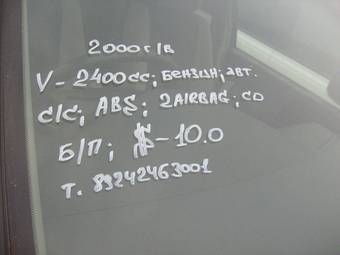 2000г/в
V-2400cc; БЕНЗИН; авт.
С/С; ABS; 2AIRBAG; CD
Б/П; $-10.0
Т. 89242463001